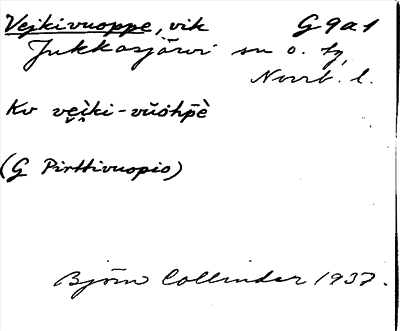 Vejkivuoppe, vik G9a1
Jukkasjärvi sn o. tg,
Norrb. l.
Kv vei̭ki-vŭòhpè
(G Pirttivuopio)
Björn Collinder 1937.